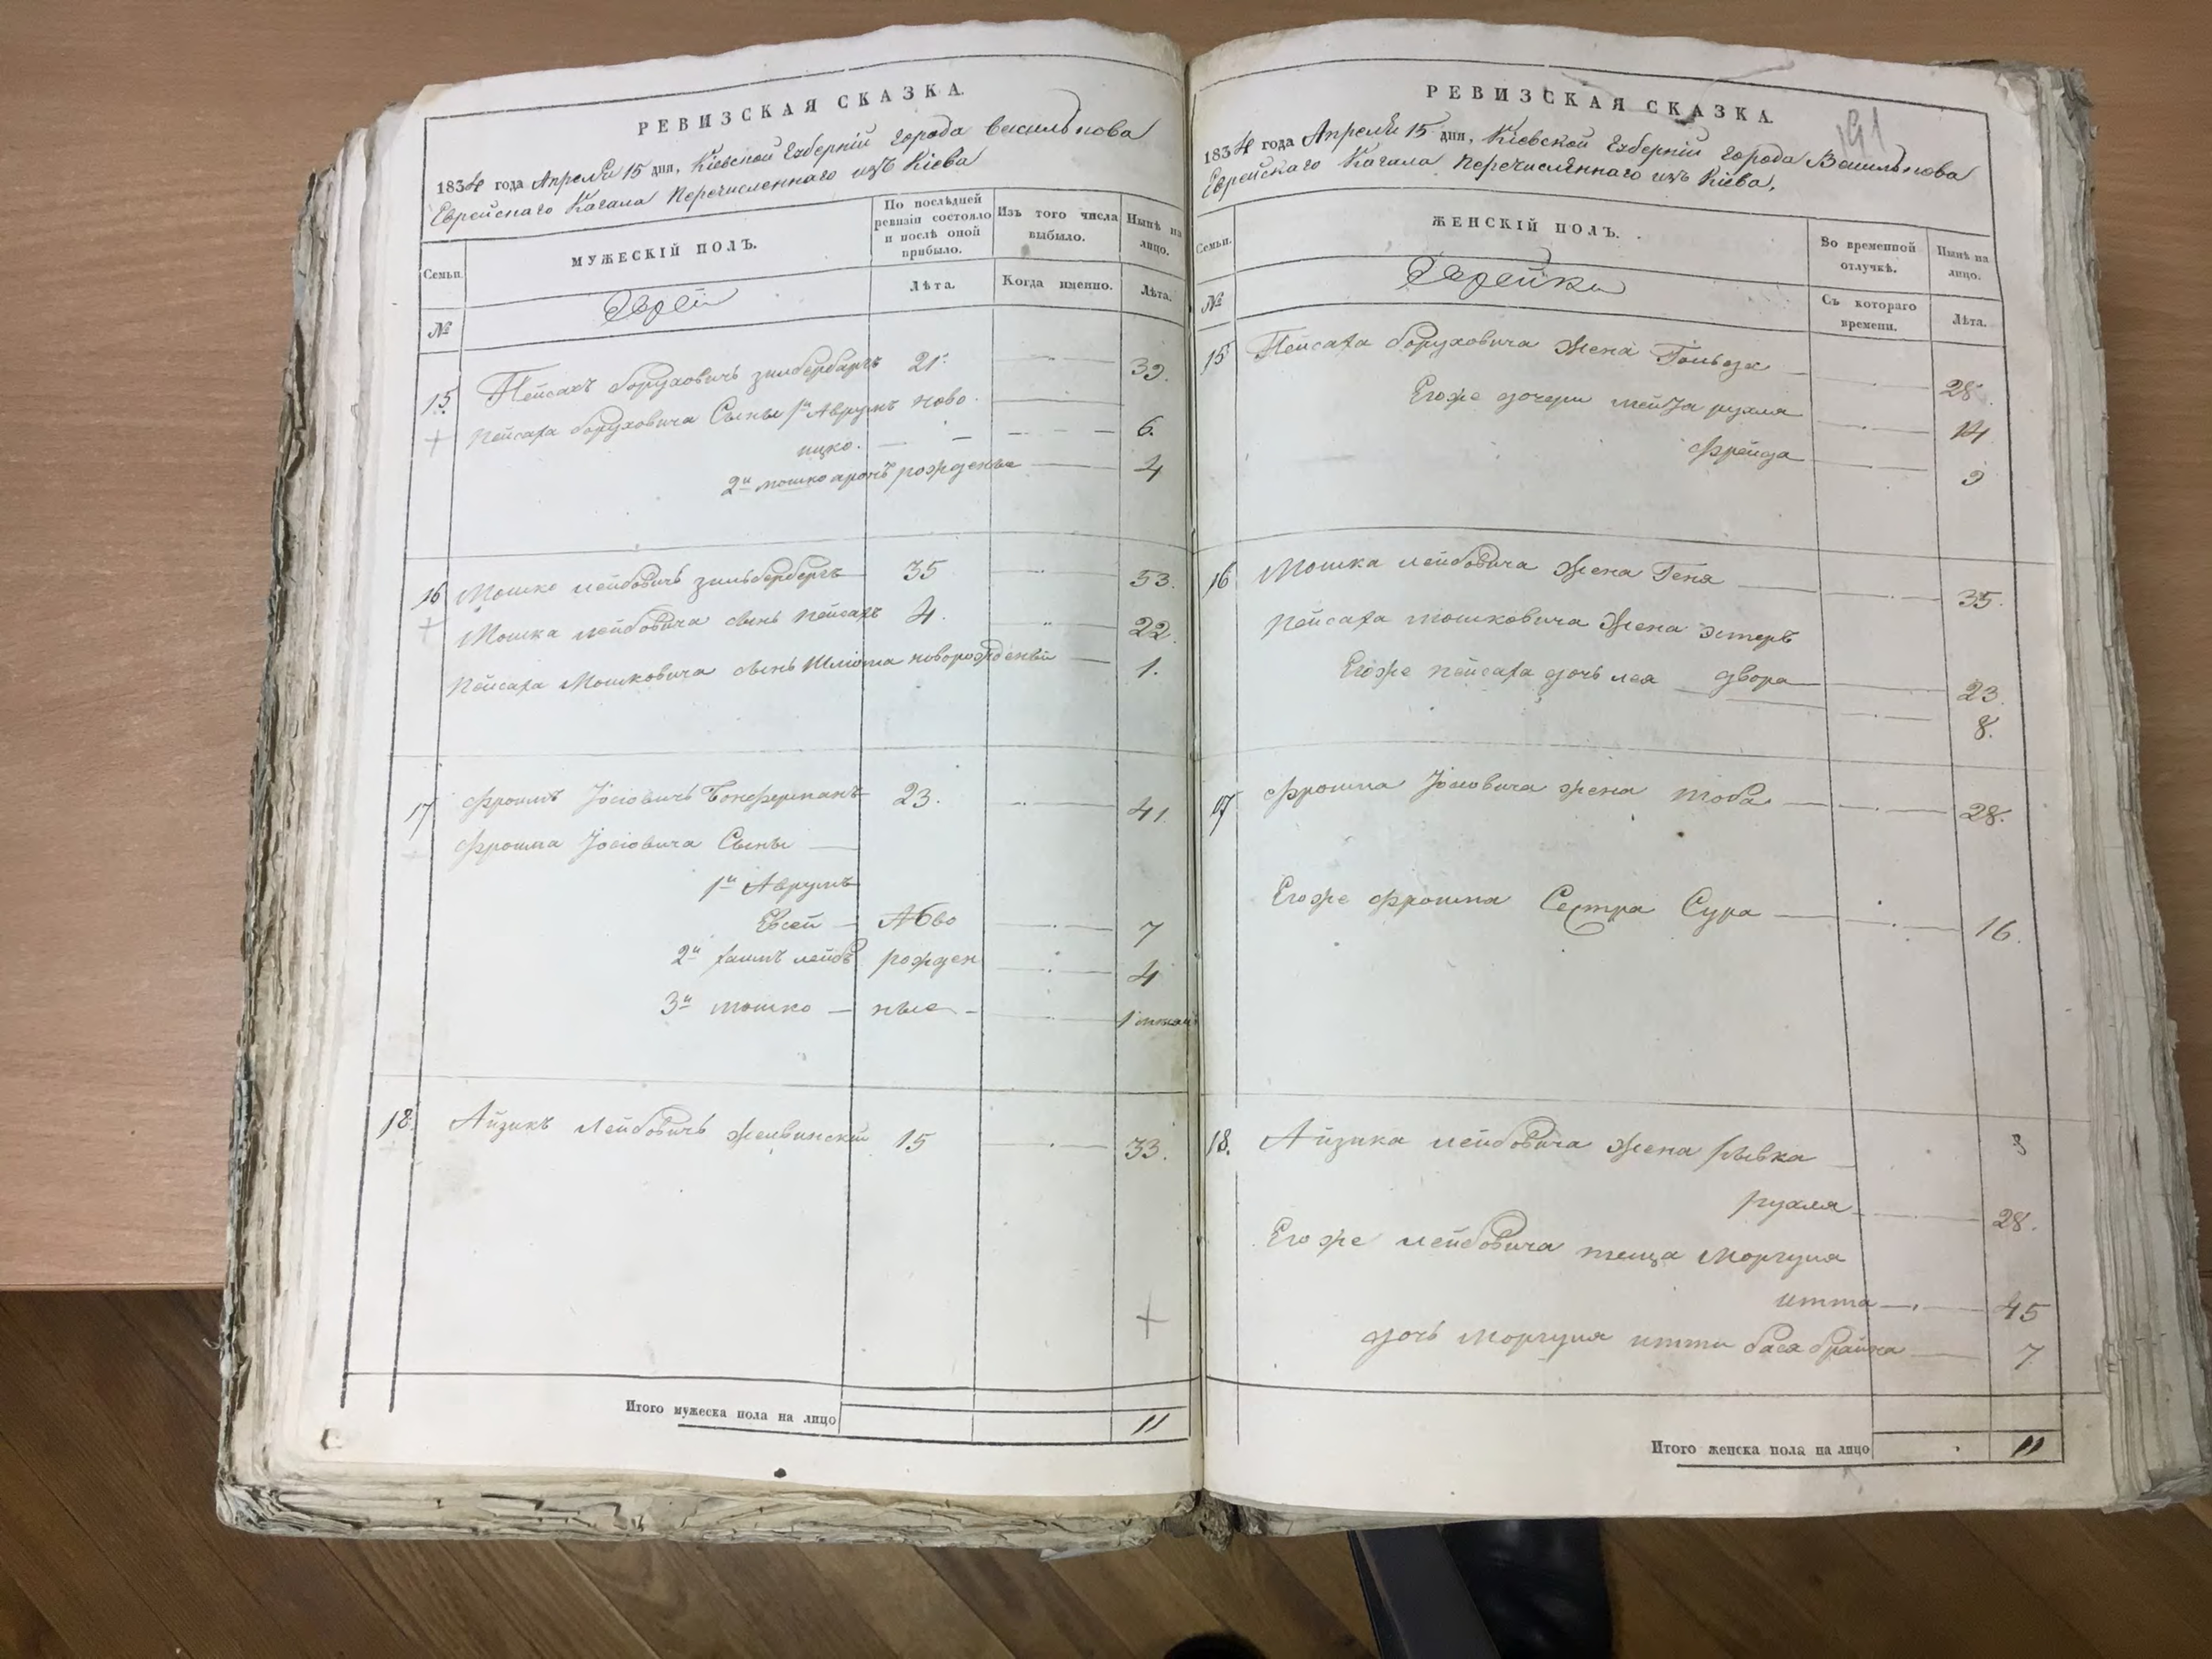 РЕВИЗСКАЯ СКАЗКА.
1834 года Апреля 15 дня, Кіевской Губерніи города Василькова
Еврейскаго Кагала Перечисленнаго изъ Кіева
Семьи.
МУЖЕСКІЙ ПОЛЪ.
По послѣдней ревизіи состояло и послѣ оной прибыло.
Изъ того числа выбыло.
Нынѣ на лицо.
№
Еврей
Лѣта.
Когда именно.
Лѣта.
15. Пейсахъ Боруховичъ Зильбербергъ 21. 39.
Пейсаха Боруховича Сыны 1й Аврумъ ново
ицко. 6.
2й мошко аронъ рожденые 4
16 Мошко лейбовичъ зильбербергъ 35 53.
Мошка лейбовича сынъ пейсахъ 4. 22.
Пейсаха Мошковича сынъ Шліома новорожденый 1.
17 Фроимъ Іосіовичъ 23. 41.
Фроима Іосіовича Сыны
1й Аврумъ
Евсей 7
2й хаимъ лейбъ рожден 4
3й мошко ные 1
18. Айзикъ Лейбовичъ 15 33.
Итого мужеска пола на лицо 11
РЕВИЗСКАЯ СКАЗКА.
191
1834 года Апреля 15 дня, Кіевской Губерніи города Василькова
Еврейскаго Кагала Перечисленнаго изъ Кіева.
Семьи.
ЖЕНСКІЙ ПОЛЪ.
Во временной отлучкѣ.
Нынѣ на лицо.
№
Еврейки
Съ котораго времени.
Лѣта.
15 Пейсаха Боруховича жена Гольда 28.
Егоже дочери нейха рухля 14
фрейда 9
16 Мошка лейбовича жена Геня 35.
Пейсаха мошковича жена эстеръ
двора 23.
Егоже пейсаха дочь лея 8.
17 Фроима Іосіовича жена тоба 28.
Егоже фроима Сестра Сура 16.
18. Айзика лейбовича жена рывка
рухля 28.
Егоже лейбовича теща Моргуля
итта 45
дочь моргуля итти бася брайна 7
Итого женска пола на лицо 11